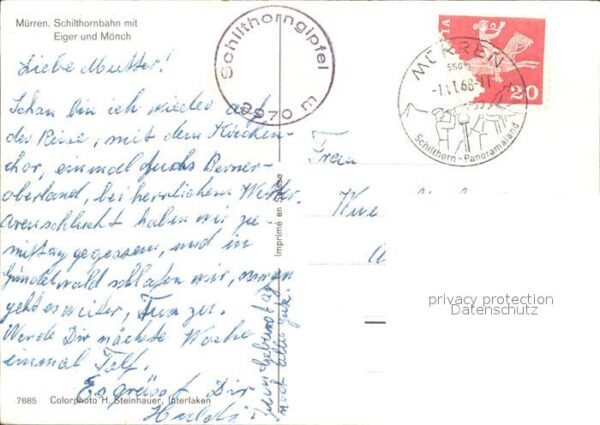 Mürren. Schilthornbahn mit
Eiger und Mönch
Schilthorngipfel
2970 m
MÜRREN
-1.68-11
Schilthorn-Panoramaland
HELVETIA
20
Liebe Mutter!
Schon bin ich wieder auf
der Reise, mit dem Kirchen-
chor, einmal Berner-
oberland, bei herrlichem Wetter.
Areuschlucht haben wir zu-
mittag gegessen, und in
Grindelwald schlafen wir, morgen
geht es weiter, zu.
Werde Dir nächste Woche
einmal Telf.
Es grüsst Dir
noch alles gute.
Frau
Imprimé en Suisse
privacy protection
Datenschutz
7685 Colorphoto H. Steinhauer, Interlaken